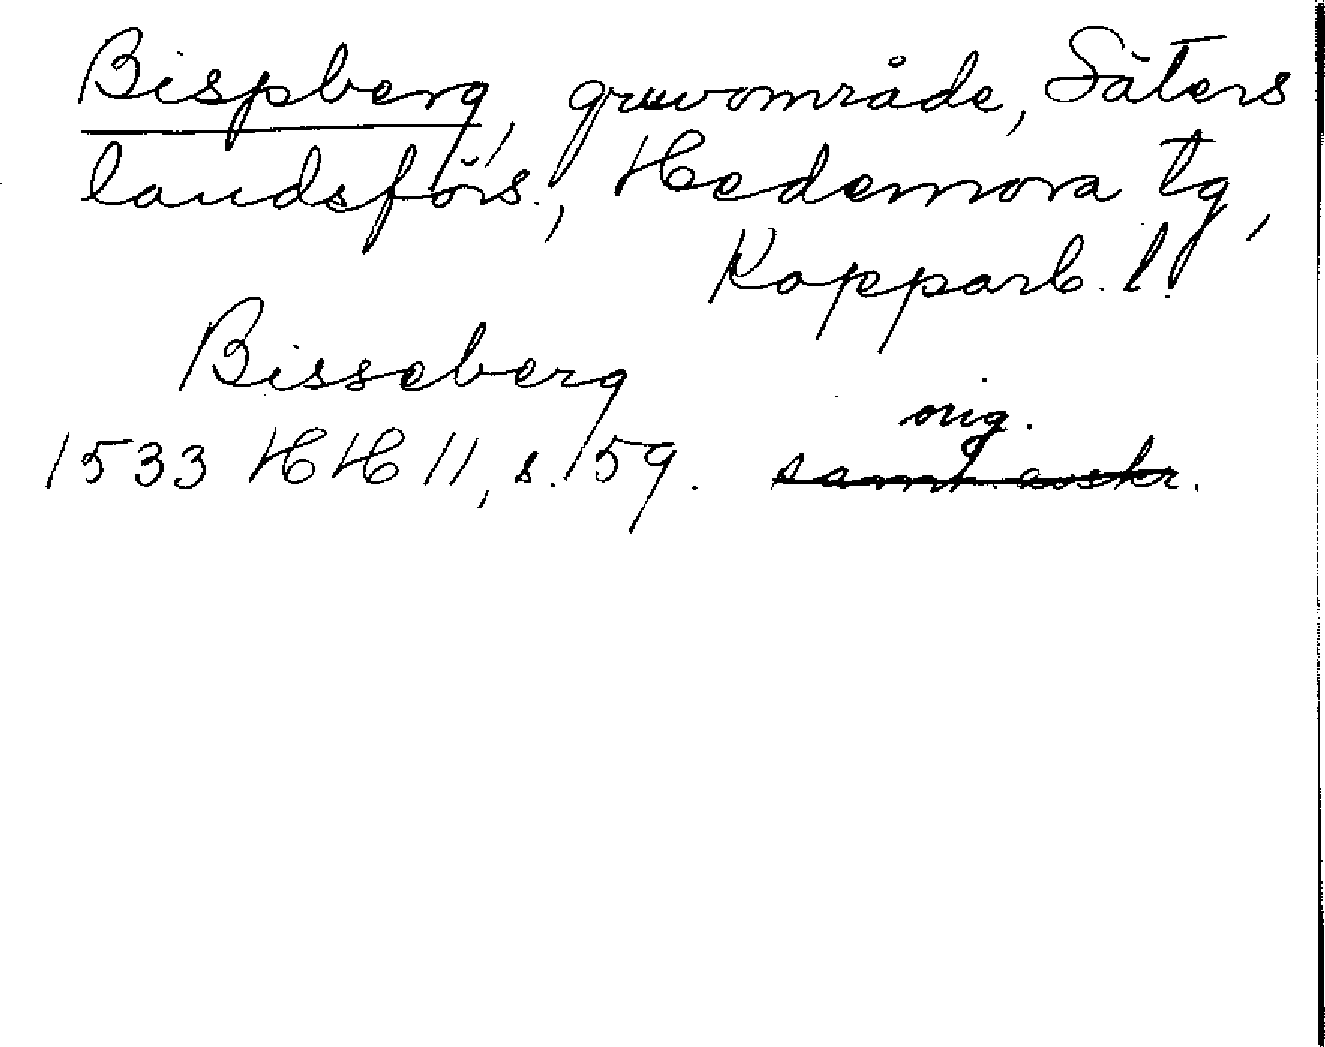 Bispberg, gruvområde, Säters
landsförs., Hedemora tg,
Kopparb. l.
Bisseberg
orig.
1533 HH 11, s. 159. samt. avskr.